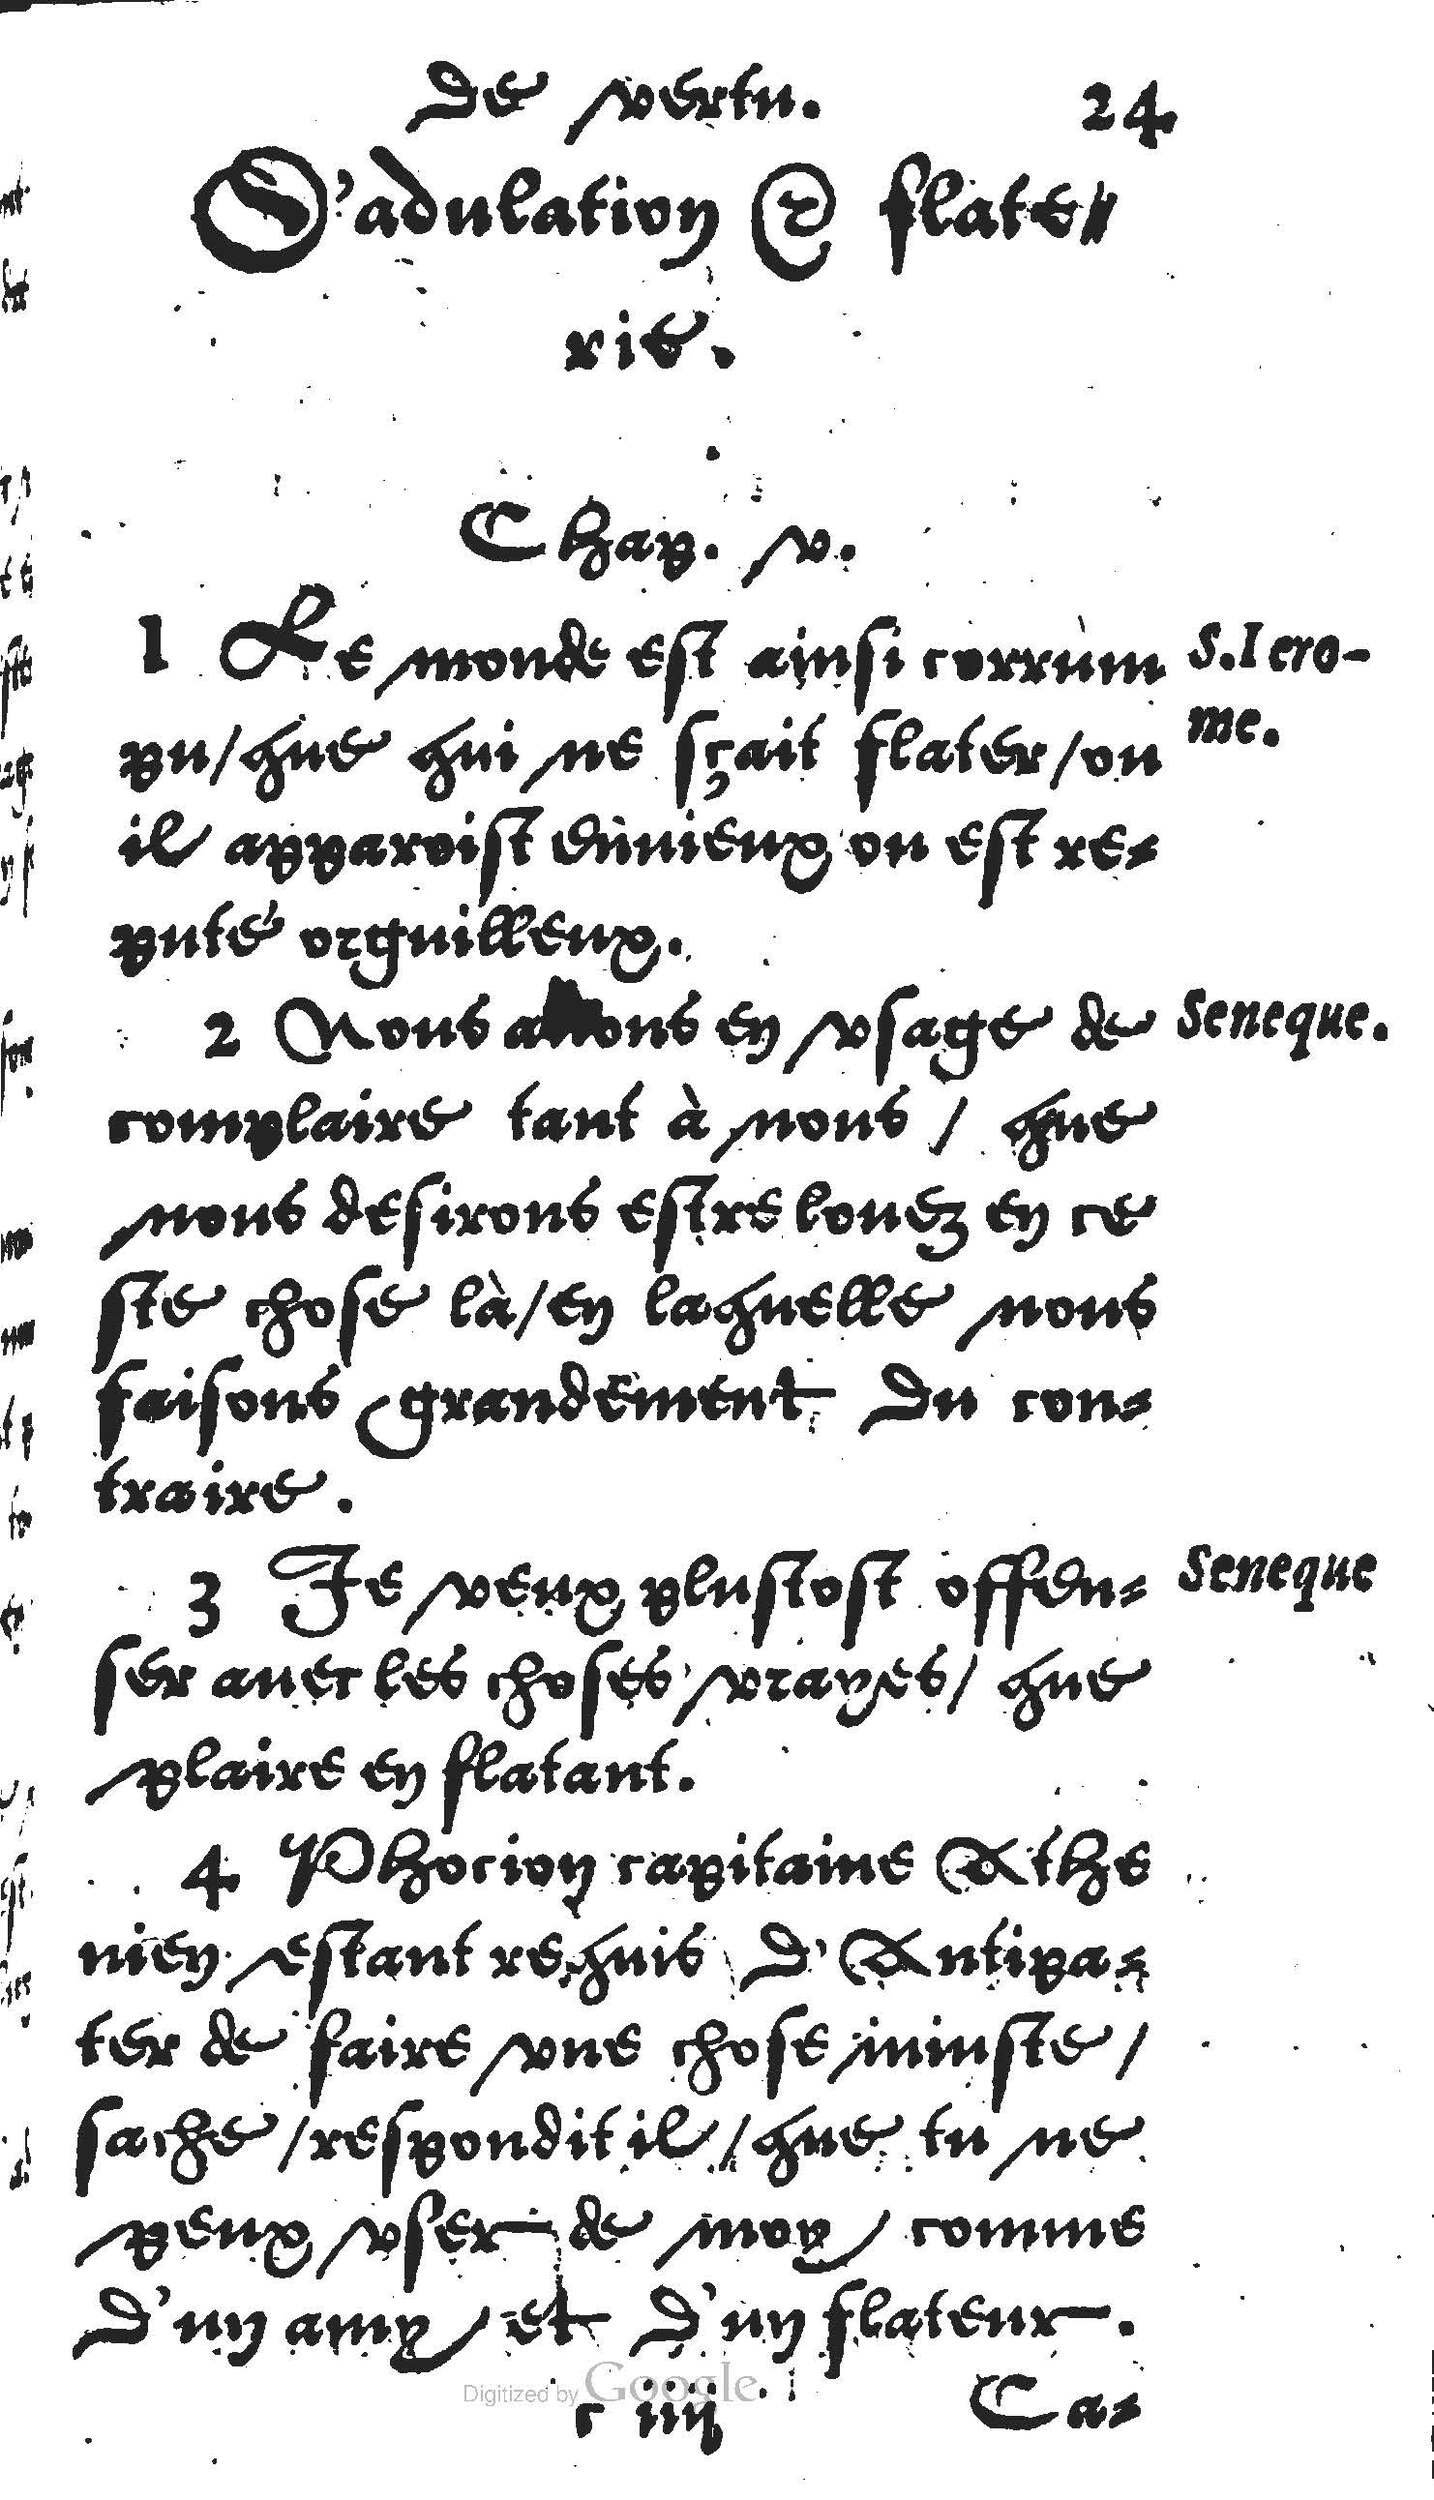 de vertu. 24
D'adulation & flate-
rie.
Chap. v.
1 Le monde est ainsi corrum S. Iero-
pu/que qui ne sçait flater/ou me.
il apparoist enuieux ou est re-
puté orguilleux.
2 Nous auons en vsage de Seneque.
complaire tant à nous / que
nous desirons estre louez en ce
ste chose là/en laquelle nous
faisons grandement du con-
traire.
3 Je veux plustost offen- Seneque
ser auec les choses vrayes/ que
plaire en flatant.
4 Phocion capitaine Athe
nien estant requis d'Antipa-
ter de faire vne chose iniuste/
sache/respondit il/que tu ne
peux vser de moy comme
d'un amy et d'un flateur.
Digitized by Google
c iiij Ca-